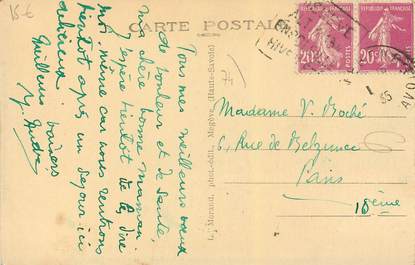 15€
CARTE POSTALE
Tous mes meilleurs vœux
de bonheur et de santé,
ma chère bonne maman.
J'espère bientôt te le dire
moi-même car nous rentrons
bientôt après un séjour ici
délicieux.
Meilleurs baisers
74
L. Morand, phot.-édit., Megève (Haute-Savoie)
REPUBLIQUE FRANÇAISE
20c
POSTES
REPUBLIQUE FRANÇAISE
20c
Madame V. Roché
6, Rue de Belzunce
Paris
10ème